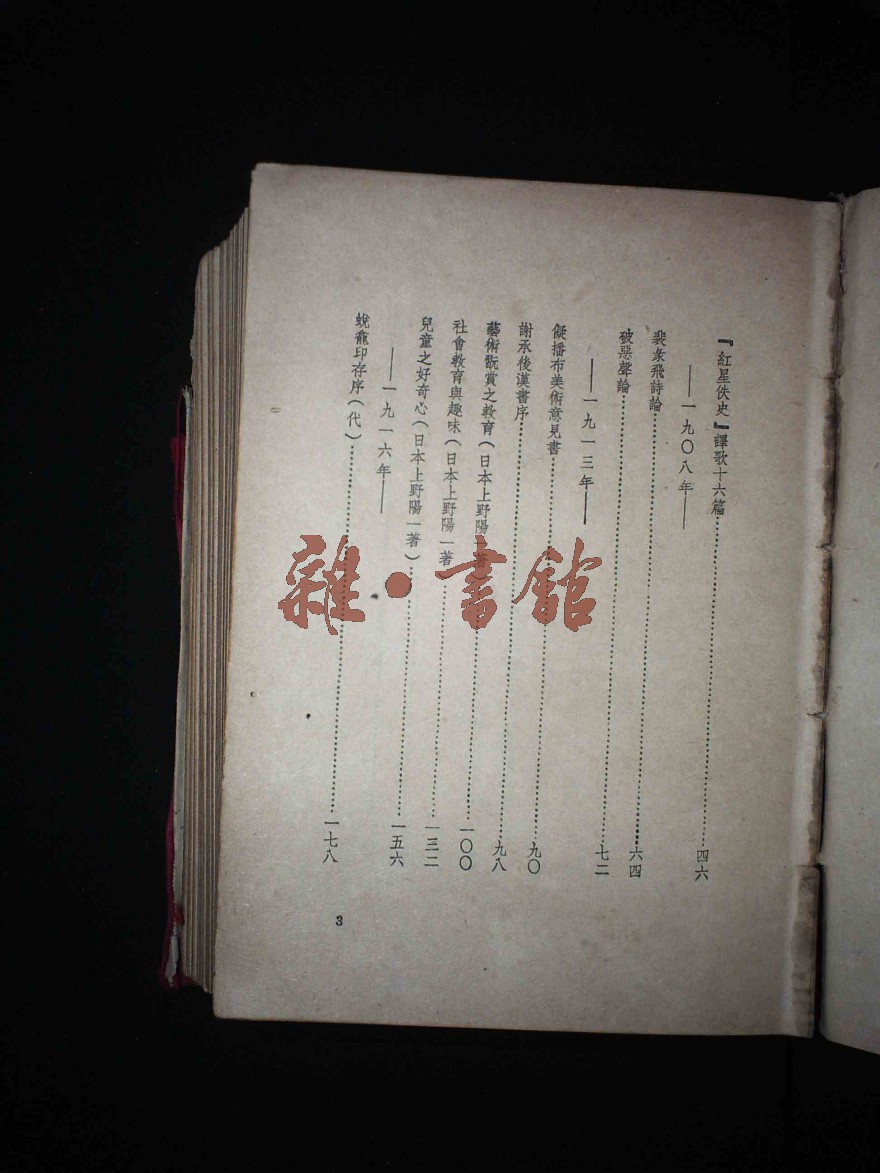 『紅星佚史』譯歌十六篇……四六
——一九〇八年——
裴彖飛詩論……六四
破惡聲論……七二
——一九一三年——
儗播布美術意見書……九〇
謝承後漢書序……九八
藝術翫賞之教育(日本上野陽一著)……一〇〇
社會教育與趣味(日本上野陽一著)……一三二
兒童之好奇心(日本上野陽一著)……一五六
——一九一六年——
蛻龕印存序(代)……一七八
3
雜·書館